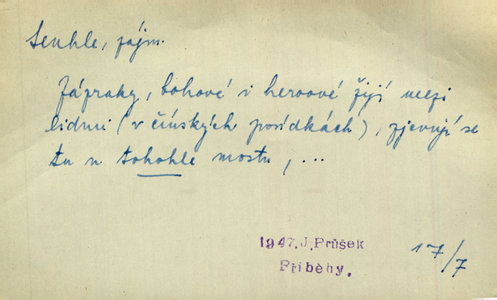 tenhle, zájm.
Zázraky, bohové i heroové žijí mezi
lidmi (v čínských povídkách), zjevují se
tu u tohohle mostu, ...
1947. J. Průšek
Příběhy.
17/7